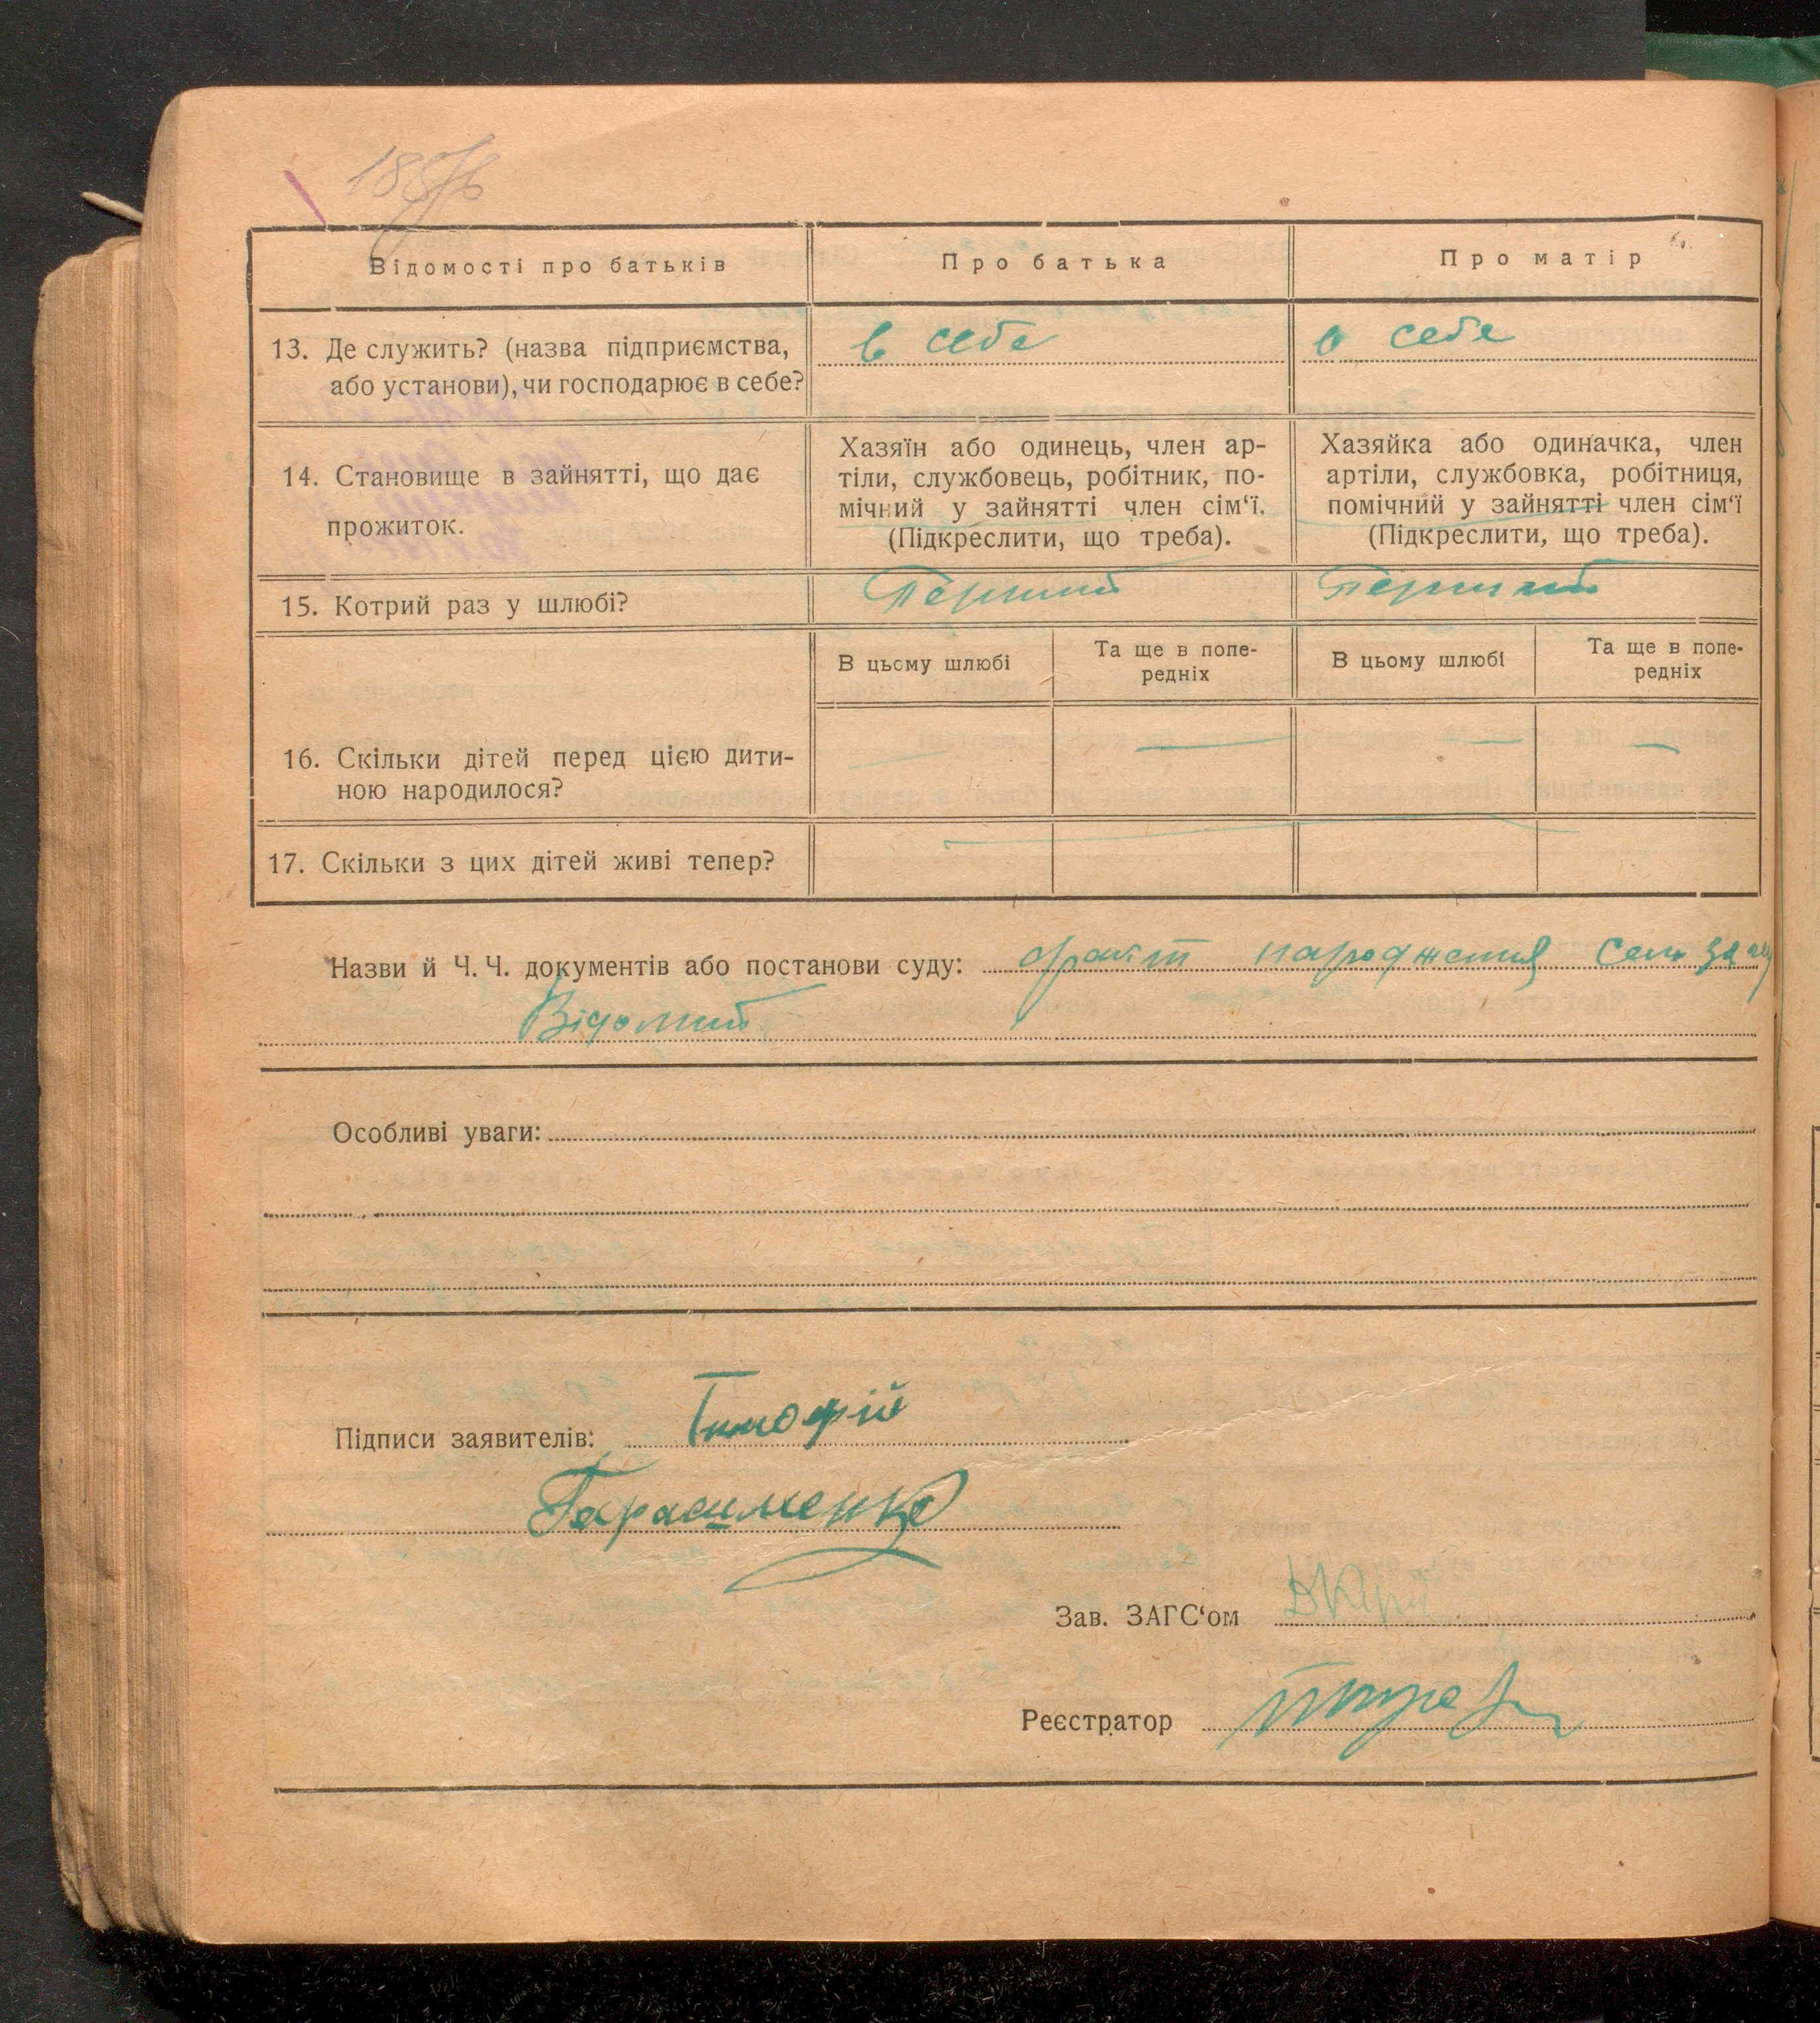 Відомості про батьків
Про батька
Про матір
13. Де служить? (назва підприємства,
або установи), чи господарює в себе?
в себе
в себе
14. Становище в зайнятті, що дає
прожиток.
Хазяїн або одинець, член ар-
тіли, службовець, робітник, по-
мічний у зайнятті член сім‘ї.
(Підкреслити, що треба).
Хазяйка або одиначка, член
артіли, службовка, робітниця,
помічний у зайнятті член сім‘ї
(Підкреслити, що треба).
15. Котрий раз у шлюбі?
Перший
Перший
В цьому шлюбі
Та ще в попе-
редніх
В цьому шлюбі
Та ще в попе-
редніх
16. Скільки дітей перед цією дити-
ною народилося?
17. Скільки з цих дітей живі тепер?
Назви й Ч. Ч. документів або постанови суду: факт народження
Відомий
Особливі уваги:
Підписи заявителів: Тимофій
Герасименко
Зав. ЗАГС‘ом
Реєстратор